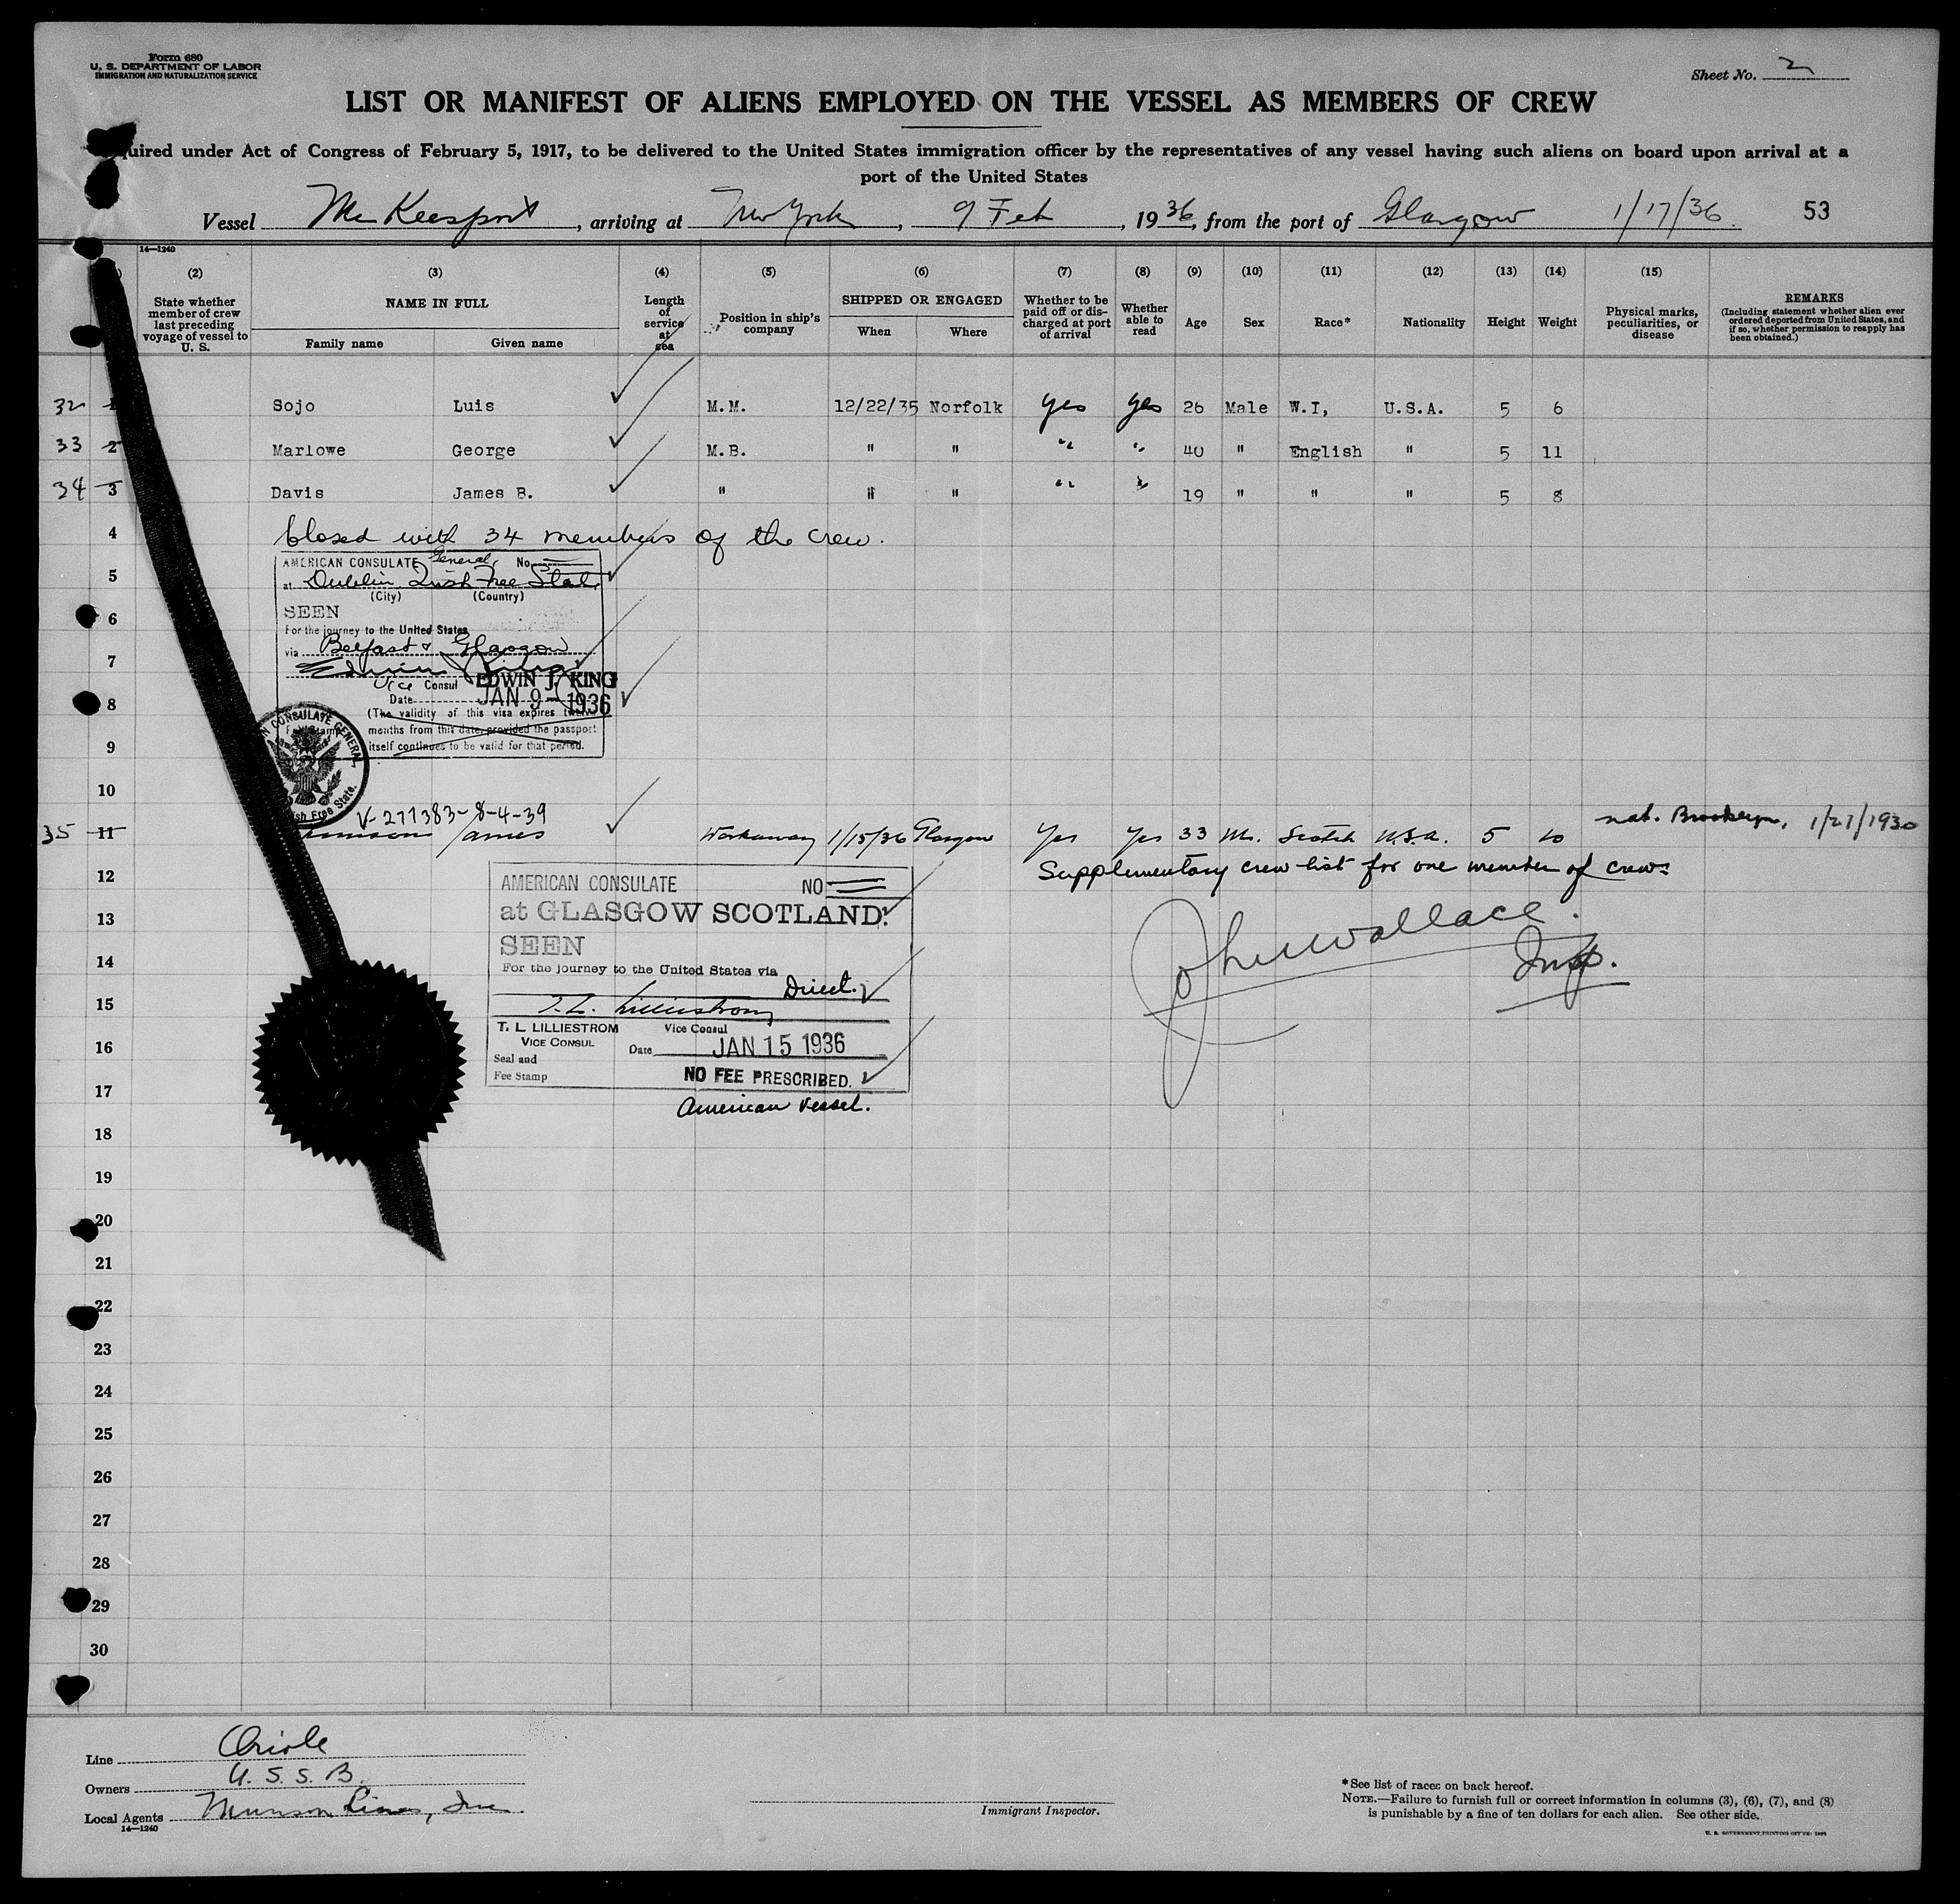 Form 680
U. S. DEPARTMENT OF LABOR
IMMIGRATION AND NATURALIZATION SERVICE
Sheet No. 2
LIST OR MANIFEST OF ALIENS EMPLOYED ON THE VESSEL AS MEMBERS OF CREW
uired under Act of Congress of February 5, 1917, to be delivered to the United States immigration officer by the representatives of any vessel having such aliens on board upon arrival at a
port of the United States
Vessel McKeesport, arriving at New York, 9 Feb, 1936, from the port of Glasgow 1/17/36. 53
14—1240
(2) (3) (4) (5) (6) (7) (8) (9) (10) (11) (12) (13) (14) (15)
State whether member of crew last preceding voyage of vessel to U. S.
NAME IN FULL
Family name Given name
Length of service at sea
Position in ship's company
SHIPPED OR ENGAGED
When Where
Whether to be paid off or discharged at port of arrival
Whether able to read
Age Sex Race* Nationality Height Weight
Physical marks, peculiarities, or disease
REMARKS
(Including statement whether alien ever ordered deported from United States, and if so, whether permission to reapply has been obtained.)
32 1 Sojo Luis M.M. 12/22/35 Norfolk yes yes 26 Male W.I, U.S.A. 5 6
33 2 Marlowe George M.B. " " " " 40 " English " 5 11
34 3 Davis James B. " " " " " 19 " " " 5 8
4 Closed with 34 members of the crew.
AMERICAN CONSULATE General, No.
5 at Dublin Irish Free State
(City) (Country)
SEEN
6
For the journey to the United States
via Belfast & Glasgow
7 Edwin J King
Vice Consul EDWIN J. KING
8 Date JAN 9-1936
(The validity of this visa expires
months from this date, provided the passport
9 itself continues to be valid for that period.
CONSULATE GENERAL
Irish Free State.
10
V-277383-8-4-39
nat. Brooklyn, 1/27/1930
35 11 James Workaway 1/15/36 Glasgow Yes Yes 33 M. Scotch U.S.A. 5 10
12 Supplementary crew list for one member of crew.
AMERICAN CONSULATE NO
13 at GLASGOW SCOTLAND.
SEEN
John Wallace.
14 For the journey to the United States via
Insp.
Direct.
15 T. L. Lilliestrom
T. L LILLIESTROM Vice Consul
VICE CONSUL
16 Date JAN 15 1936
Seal and
Fee Stamp NO FEE PRESCRIBED.
17 American Vessel.
18
19
20
21
22
23
24
25
26
27
28
29
30
Line Oriole
Owners U. S. S. B.
Local Agents Munson Lines, Inc.
14—1240
Immigrant Inspector.
*See list of races on back hereof.
NOTE.—Failure to furnish full or correct information in columns (3), (6), (7), and (8)
is punishable by a fine of ten dollars for each alien. See other side.